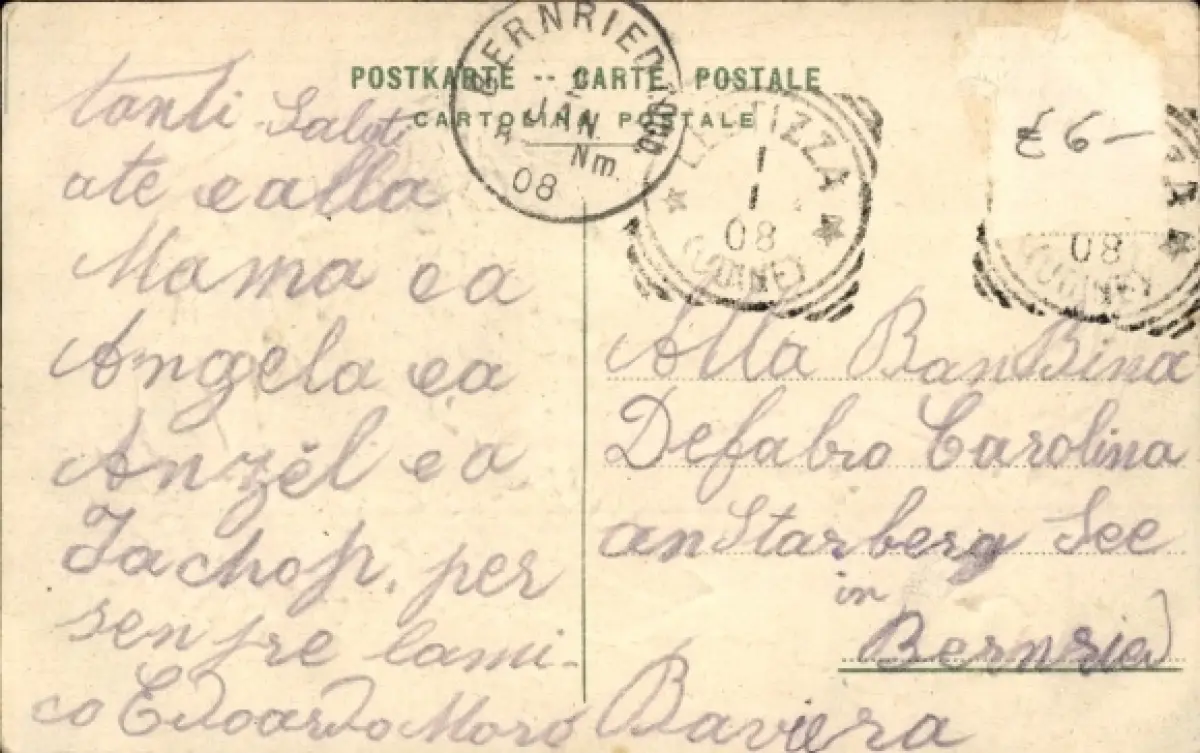 POSTKARTE -- CARTE POSTALE
CARTOLINA POSTALE
BERNRIED
2
JAN.
Nm.
08
1
1
08
(UDINE)
08
(UDINE)
£ 6 —
tanti Saluti
ate e alla
Mama e a
Angela e a
Anzel e a
Jachop. per
senpre lami-
co Edoardo Moro
Alla BanBina
Defabro Carolina
an Starberg See
in
Bernried
Baviera